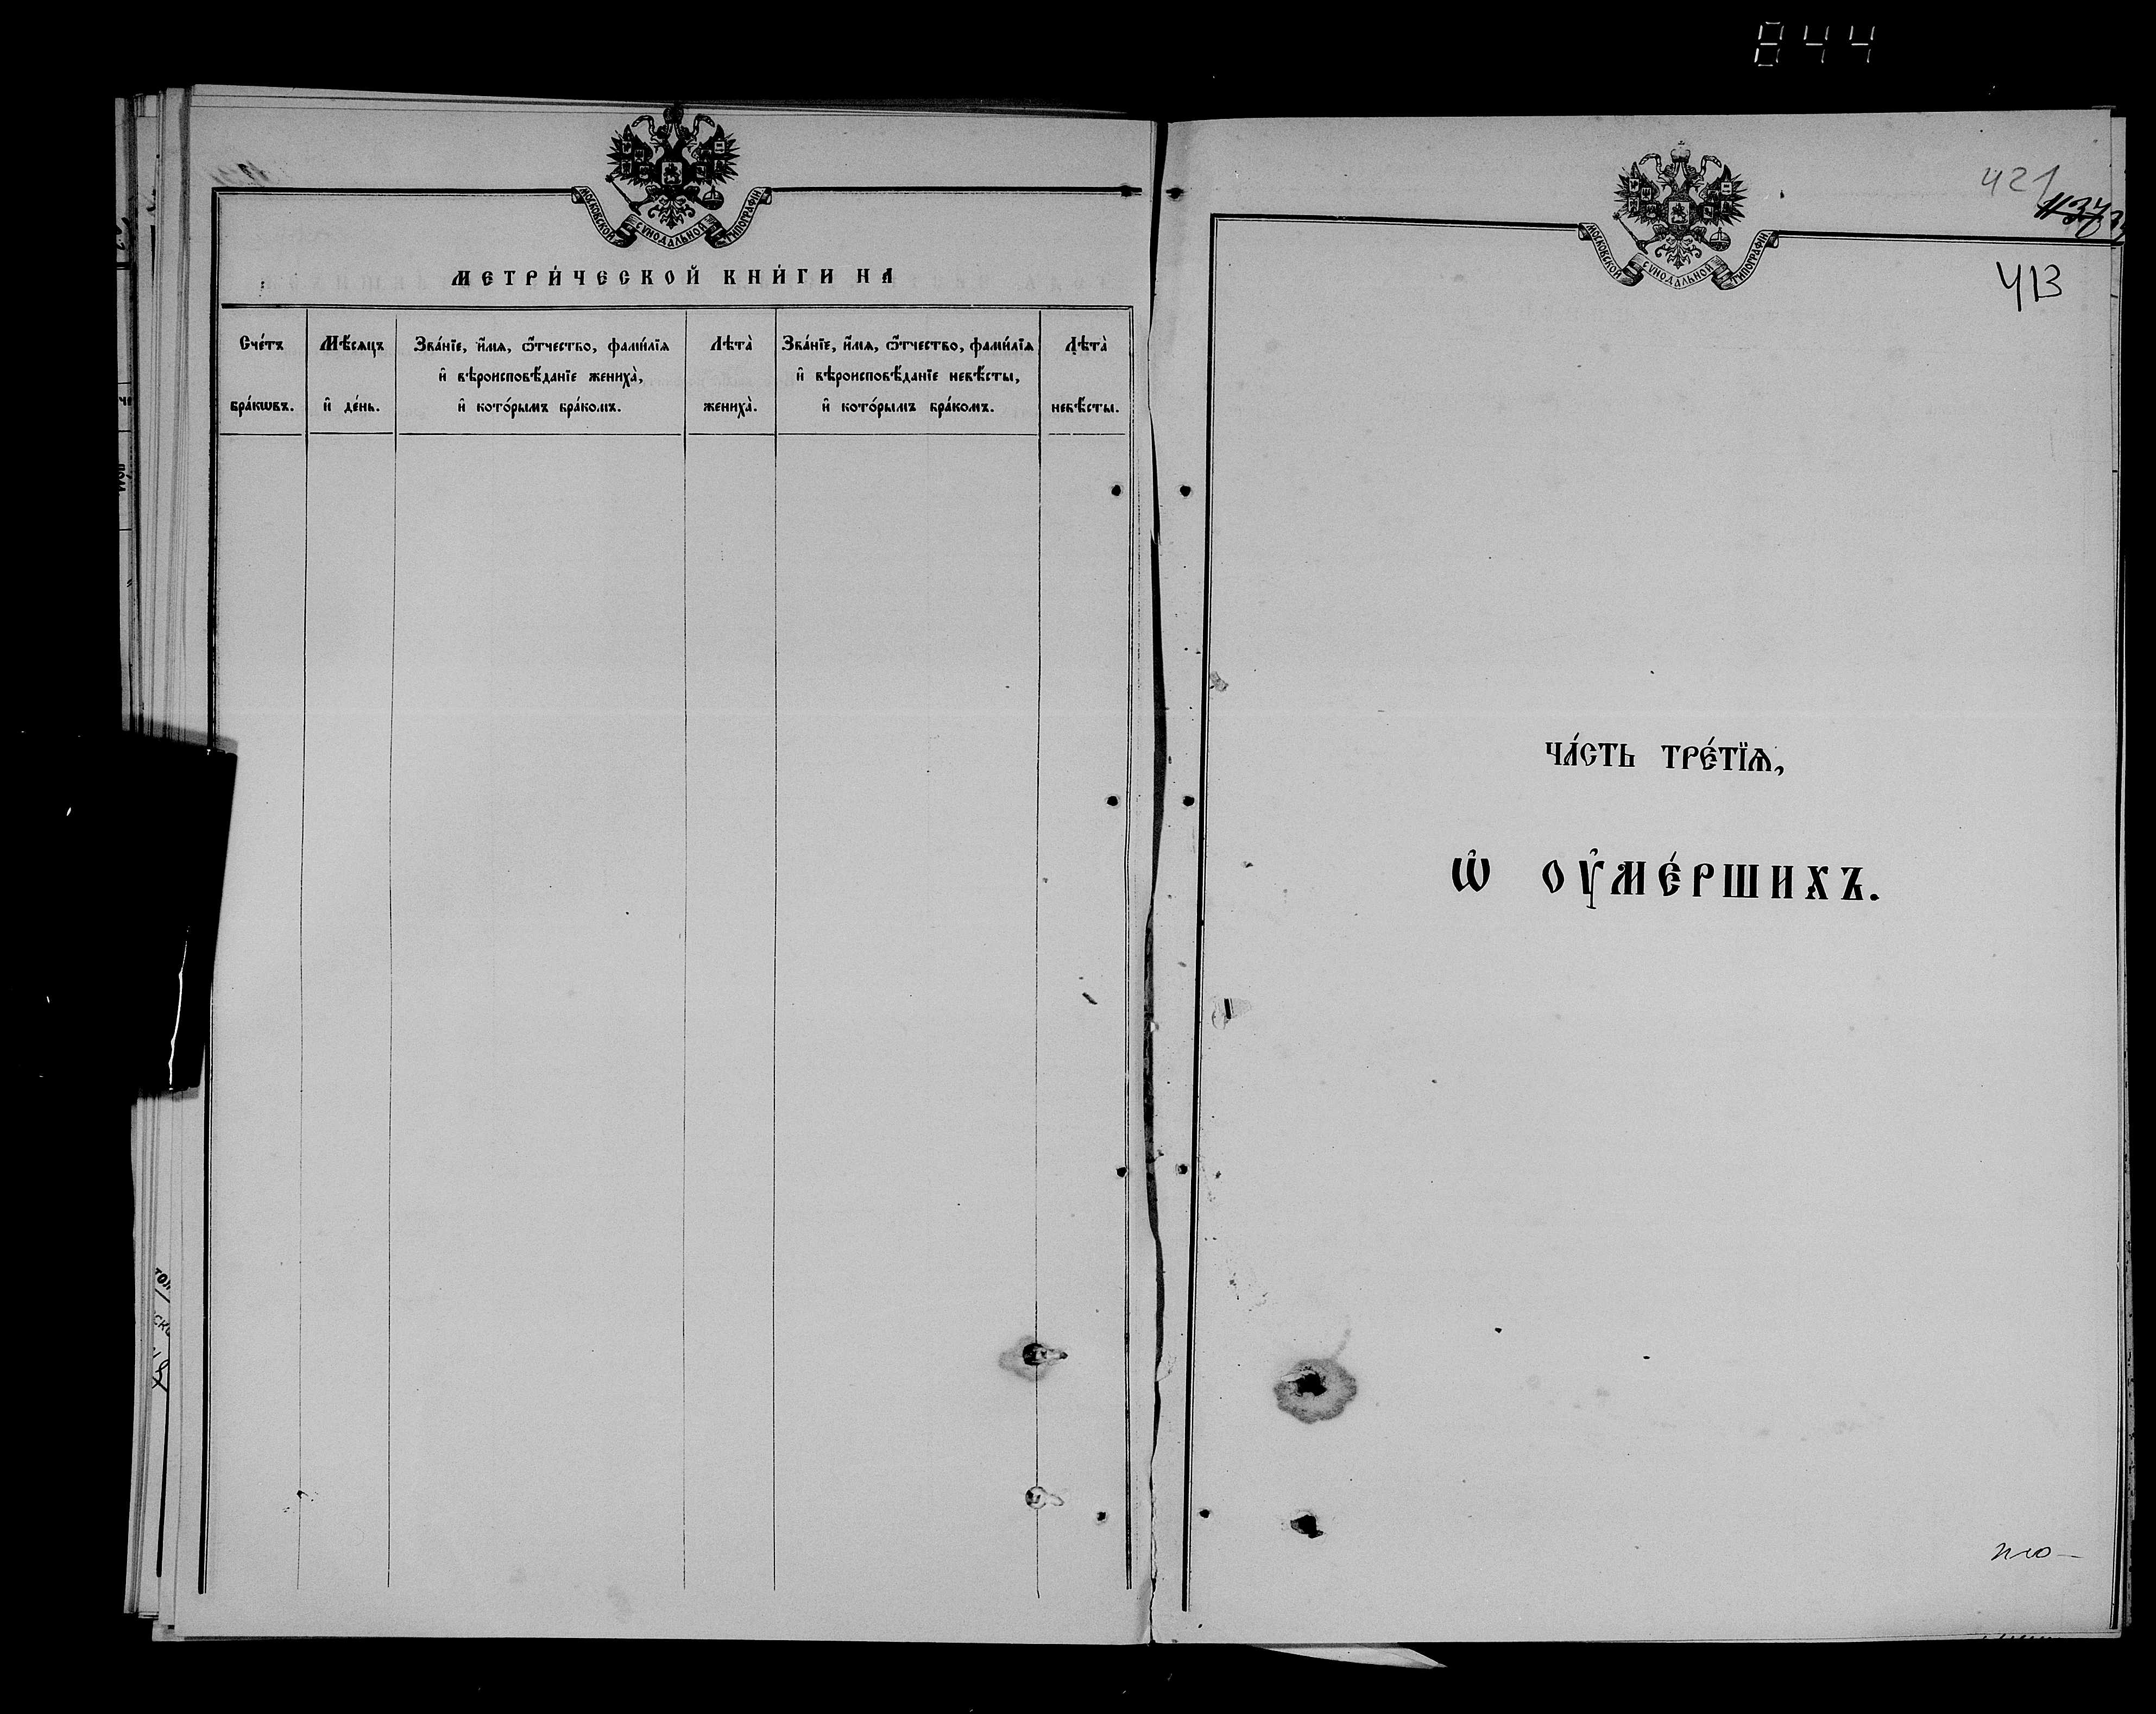 844
МОСКОВСКОЙ СѴНОДАЛЬНОЙ ТИПОГРАФІИ
МЕТРИ́ЧЕСКОЙ КНИ́ГИ НА
Сче́тъ бра́кѡвъ.
Мѣ́сяцъ и҆ де́нь.
Зва́нїе, и҆́мя, ѻ҆́тчество, фами́лїя
и҆ вѣроисповѣ́данїе жениха̀,
и҆ кото́рымъ бра́комъ.
Лѣта̀ жениха̀.
Зва́нїе, и҆́мя, ѻ҆́тчество, фами́лїя
и҆ вѣроисповѣ́данїе невѣ́сты,
и҆ кото́рымъ бра́комъ.
Лѣта̀ невѣ́сты.
МОСКОВСКОЙ СѴНОДАЛЬНОЙ ТИПОГРАФІИ
421
413
ЧА́СТЬ ТРЕ́ТЇѦ,
Ѡ҆ ОУ҆МЕ́РШИХЪ.